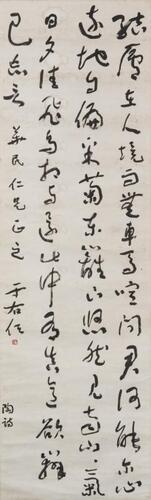 結廬在人境而無車馬喧問君何能爾心
遠地自偏采菊東籬下悠然見南山々氣
日夕佳飛鳥相與還此中有真意欲辯
已忘言
華民仁兄正之 于右任
陶詩